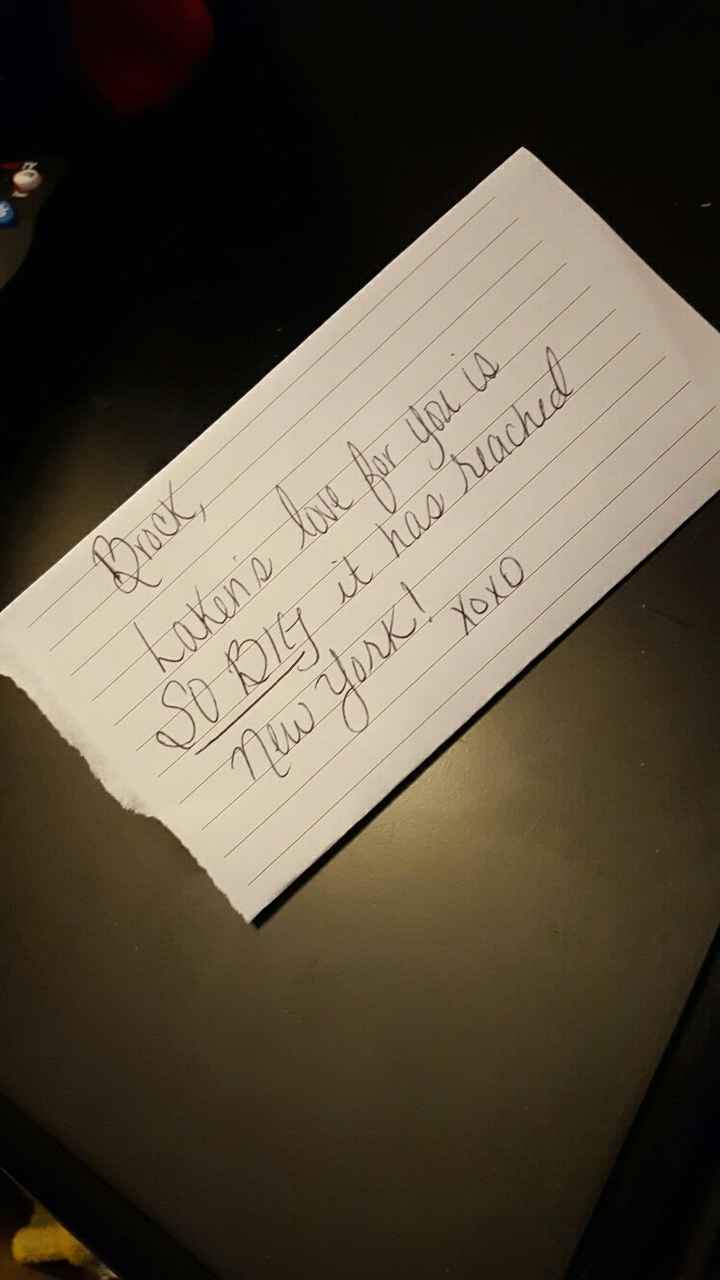 Brock,
Laken's love for you is
SO BIG it has reached
New York! xoxo